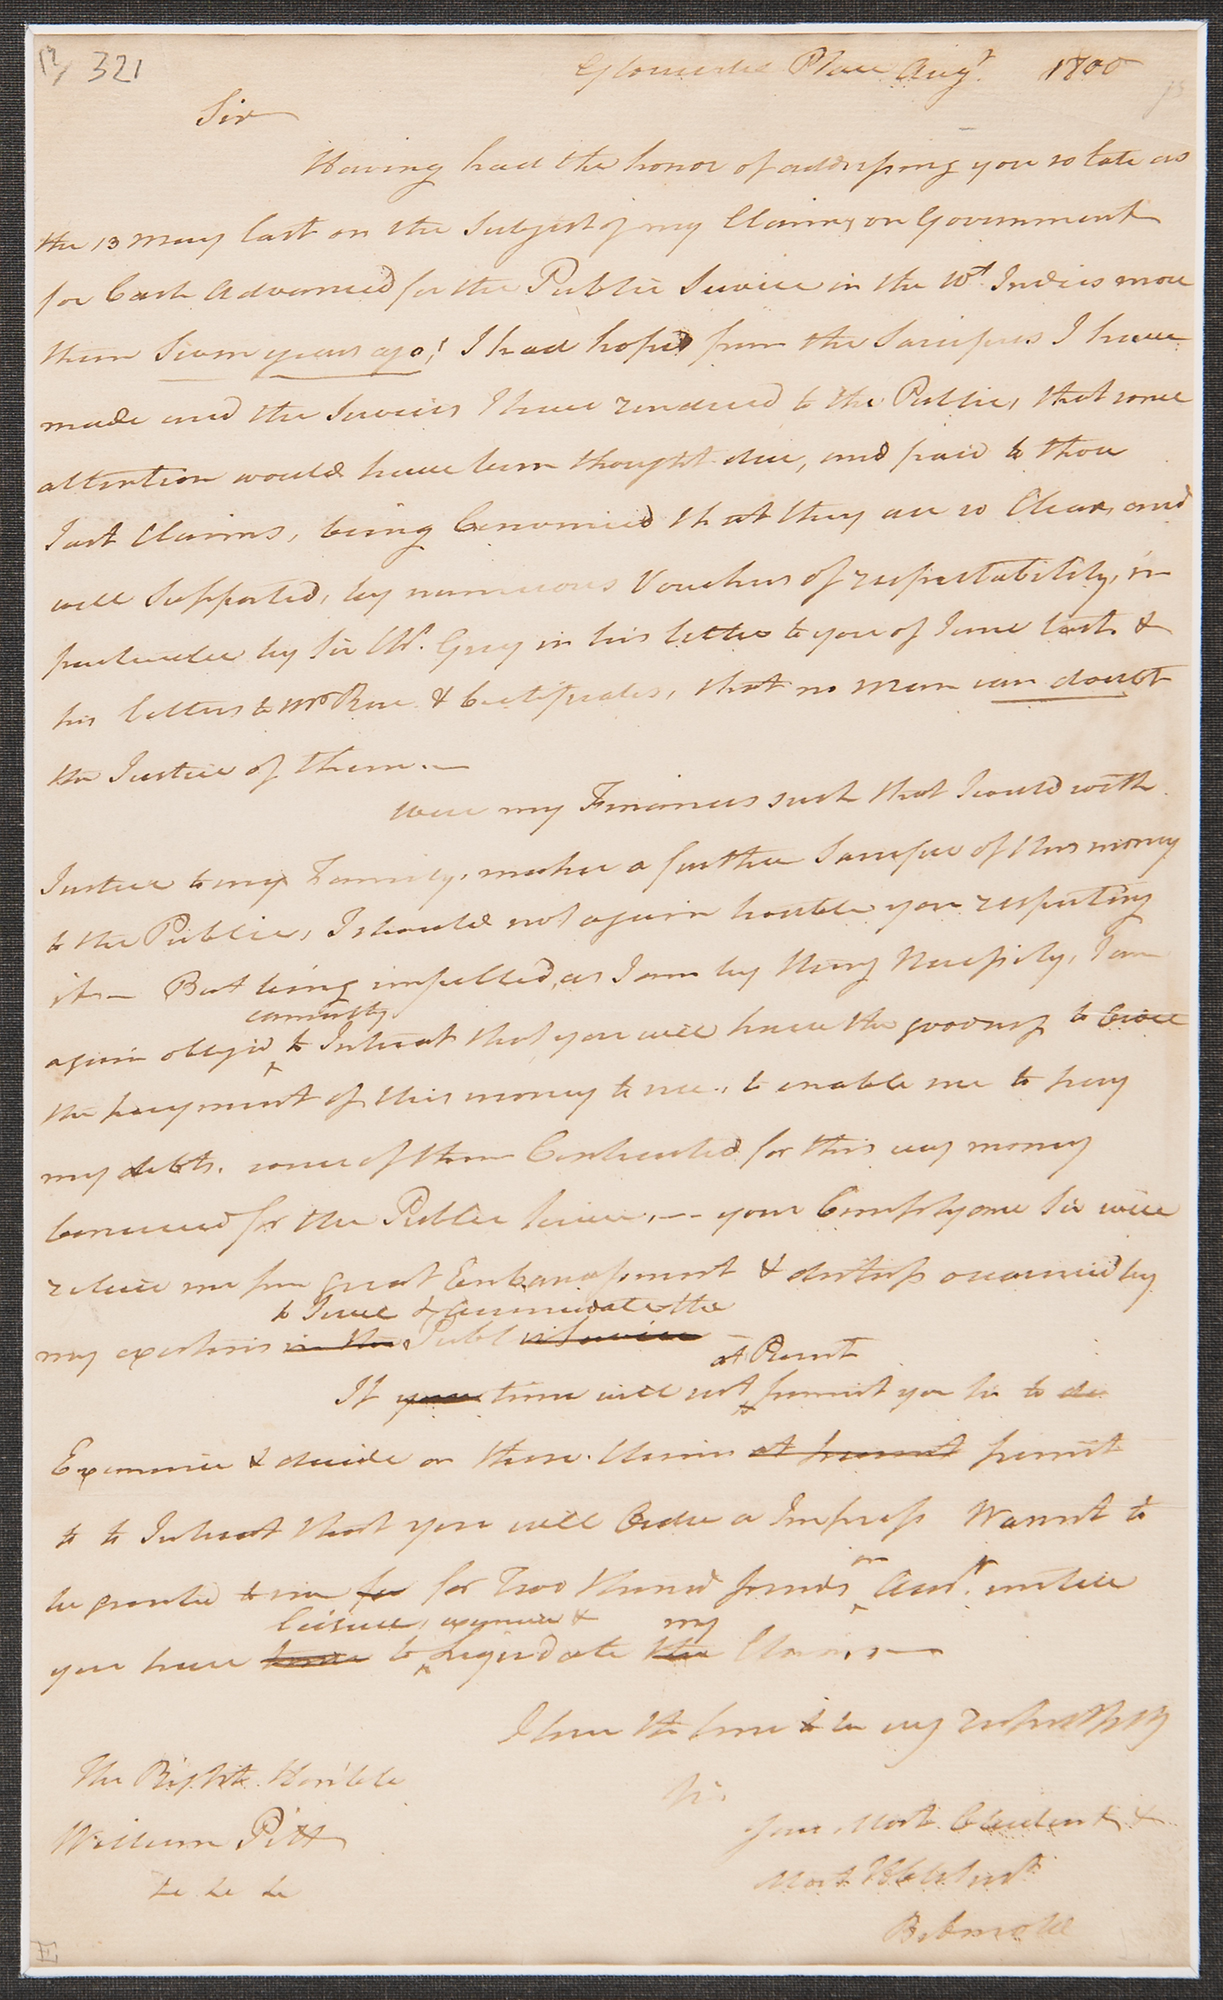 321
Gloucester Place Augt. 1800
Sir
Having had the honor of addressing you so late as
the 13 May last on the Subject of my Claims on Government
for Cash Advanced for the Public Service in the Wt. Indies more
than Seven years ago! I had hoped from the Sacrifices I have
made and the Services I have rendered to the Public, that some
attention would have been thought due, and paid to those
Just Claims, being Convinced that they are so Clear, and
well Supported, by numerous Vouchers of respectability, in
particular by Sir Chs. Grey in his letter to you of June last &
his letters to Mr Rose & Certificates, that no man can doubt
the Justice of them.—
Were my Finances such that I could with
Justice to my Family, make a further Sacrifice of this money
to the Public, I should not again trouble you respecting
it— But being impelled, as I am by strong Necessity, I am
earnestly
again obliged to Intreat that you will have the goodness to
the payment of this money to me, to enable me to pay
my debts, some of them Contracted for this very money
borrowed for the Public Service,— your Complyance Sir will
relieve me from great Embarrassment & distress occasioned by
to Serve & Accommodate the
my exertions in the Public Service
at Present
If your time will not permit you Sir to do
Examine & decide on these Claims at present permit
to to Intreat that you will Order a Impress Warrant to
be granted to me for for Two thousd pounds on Acct. untill
leisure, examine & my
you have time to Liquidate the Claims—
I have the honor to be very respectfully
Sir
The Right Honble
William Pitt
&c &c &c
Your Most Obedient &
Most Hble Servt